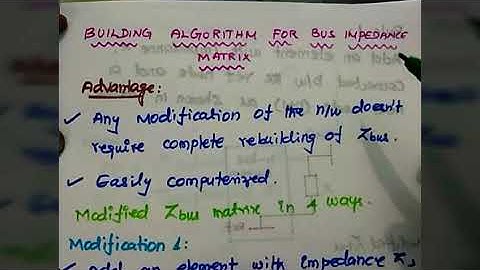 BUILDING ALGORITHM FOR BUS IMPEDANCE
MATRIX
Advantage:
✓ Any Modification of the n/w doesn't
require complete rebuilding of Zbus.
✓ Easily computerized.
Modified Zbus matrix in 4 ways.
Modification 1:
✓ Add an element with impedance